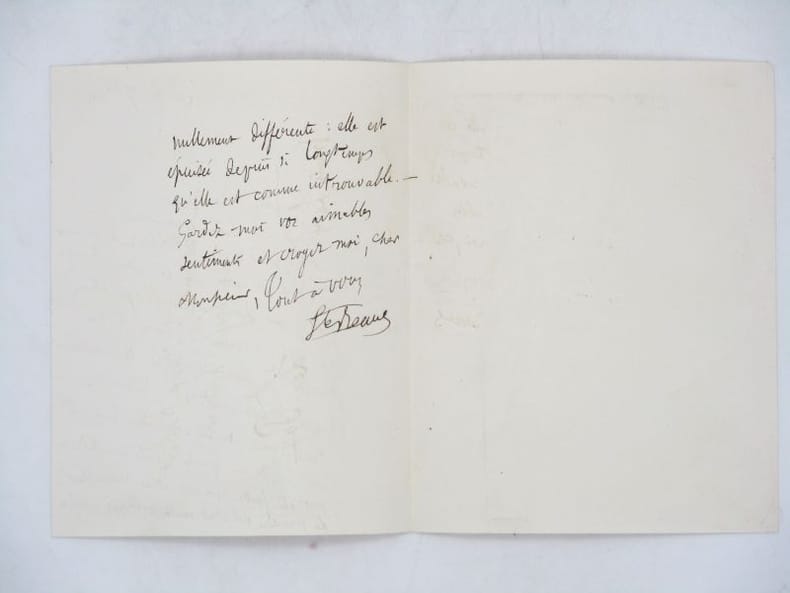 nullement différente : elle est
épuisée depuis si longtemps
qu'elle est comme introuvable. —
Gardez moi vos aimables
sentiments et croyez moi, cher
Monsieur, Tout à vous
Ste Beuve